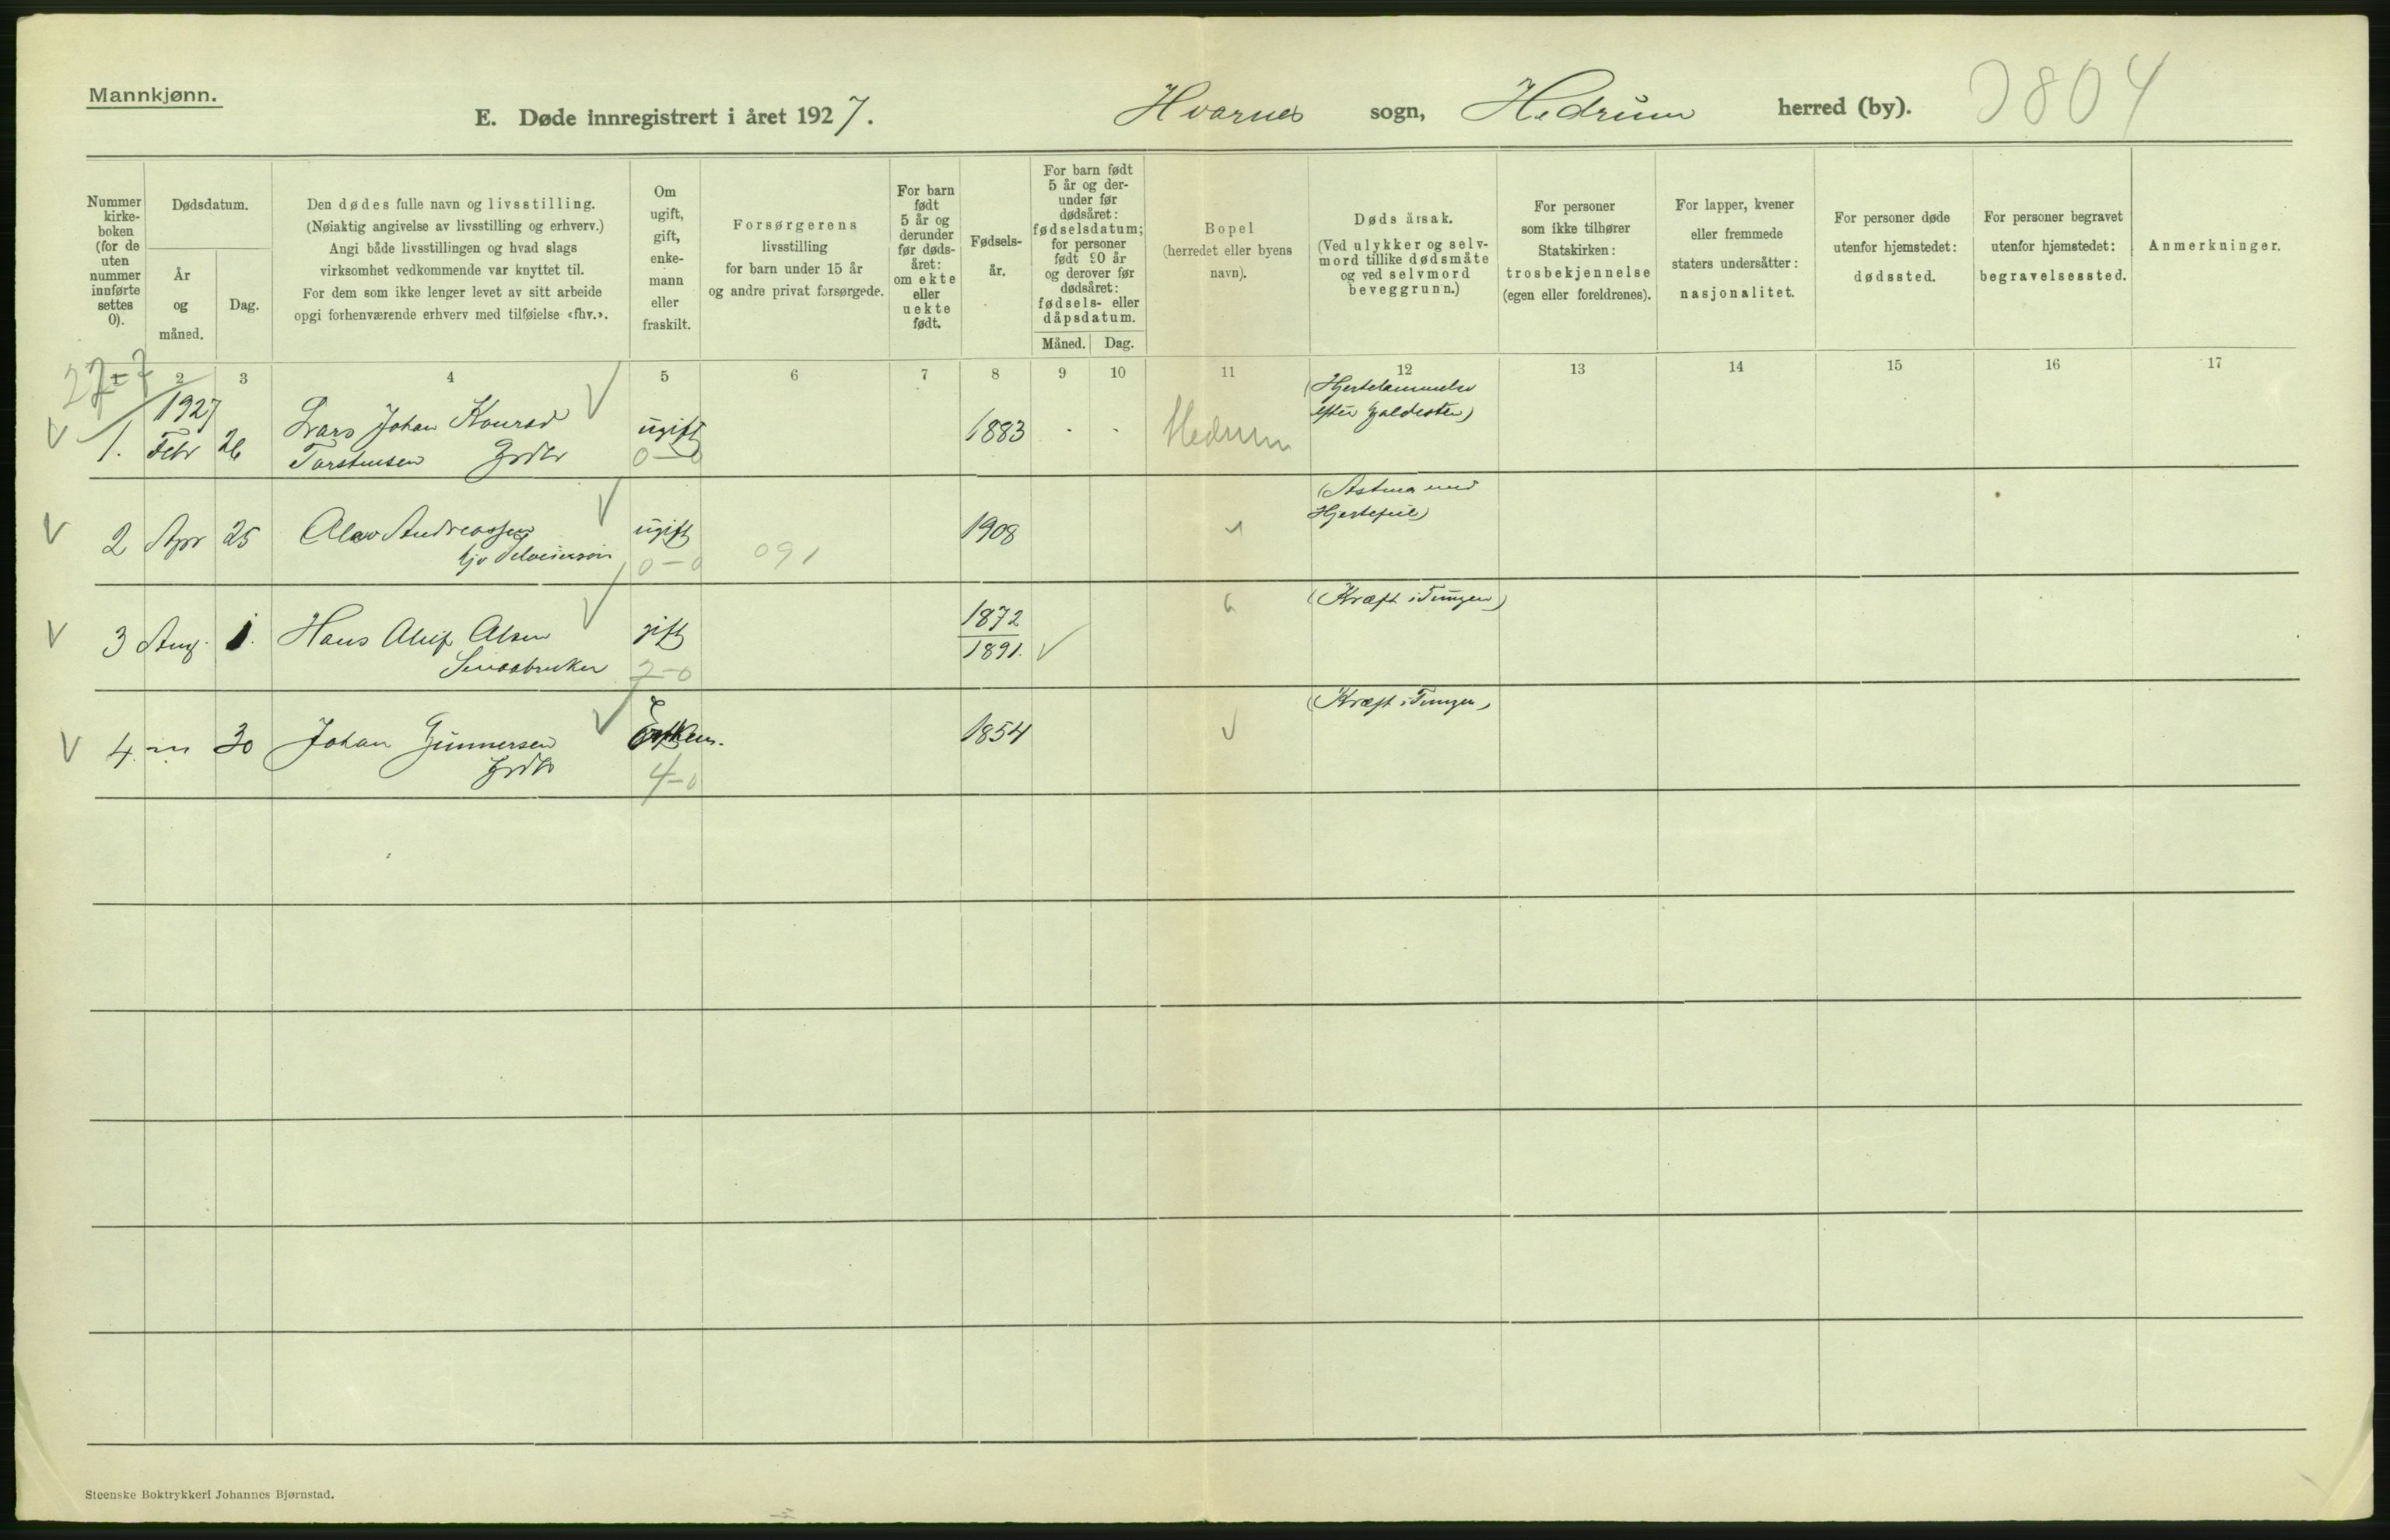 Mannkjønn.
E. Døde innregistrert i året 1927. Hvarnes sogn, Hedrum herred (by). 0804
Nummer kirke-boken (for de uten nummer innførte settes 0).
Dødsdatum.
År og måned.
Dag.
Den dødes fulle navn og livsstilling.
(Nøiaktig angivelse av livsstilling og erhverv.)
Angi både livsstillingen og hvad slags
virksomhet vedkommende var knyttet til.
For dem som ikke lenger levet av sitt arbeide
opgi forhenværende erhverv med tilføielse «fhv.».
Om
ugift,
gift,
enke-
mann
eller
fraskilt.
Forsørgerens
livsstilling
for barn under 15 år
og andre privat forsørgede.
For barn
født
5 år og
derunder
før døds-
året:
om ekte
eller
uekte
født.
Fødsels-
år.
For barn født
5 år og der-
under før
dødsåret:
fødselsdatum;
for personer
født 90 år
og derover før
dødsåret:
fødsels- eller
dåpsdatum.
Måned. Dag.
Bopel
(herredet eller byens
navn).
Dødsårsak.
(Ved ulykker og selv-
mord tillike dødsmåte
og ved selvmord
beveggrunn.)
For personer
som ikke tilhører
Statskirken:
trosbekjennelse
(egen eller foreldrenes).
For lapper, kvener
eller fremmede
staters undersåtter:
nasjonalitet.
For personer døde
utenfor hjemstedet:
dødssted.
For personer begravet
utenfor hjemstedet:
begravelsessted.
Anmerkninger.
1 2 3 4 5 6 7 8 9 10 11 12 13 14 15 16 17
27-7
1927
1. Febr 26 Lars Johan Konrad ugift 1883 Hedrum (Hjertelammelse
Torstensen Grdbr 0-0 efter Galdesten)
2 Apr 25 Olav Andreassen ugift 1908 (Astma med
0-0 091 Hjertefeil)
3 Aug. 1. Hans Oluf Olsen gift 1872 (Kræft i Tungen)
Smaabruker 2-0 1891
4 -"- 30 Johan Gunnersen Enkem. 1854 (Kræft i Tungen)
Grdbr 4-0
Steenske Boktrykkeri Johannes Bjørnstad.